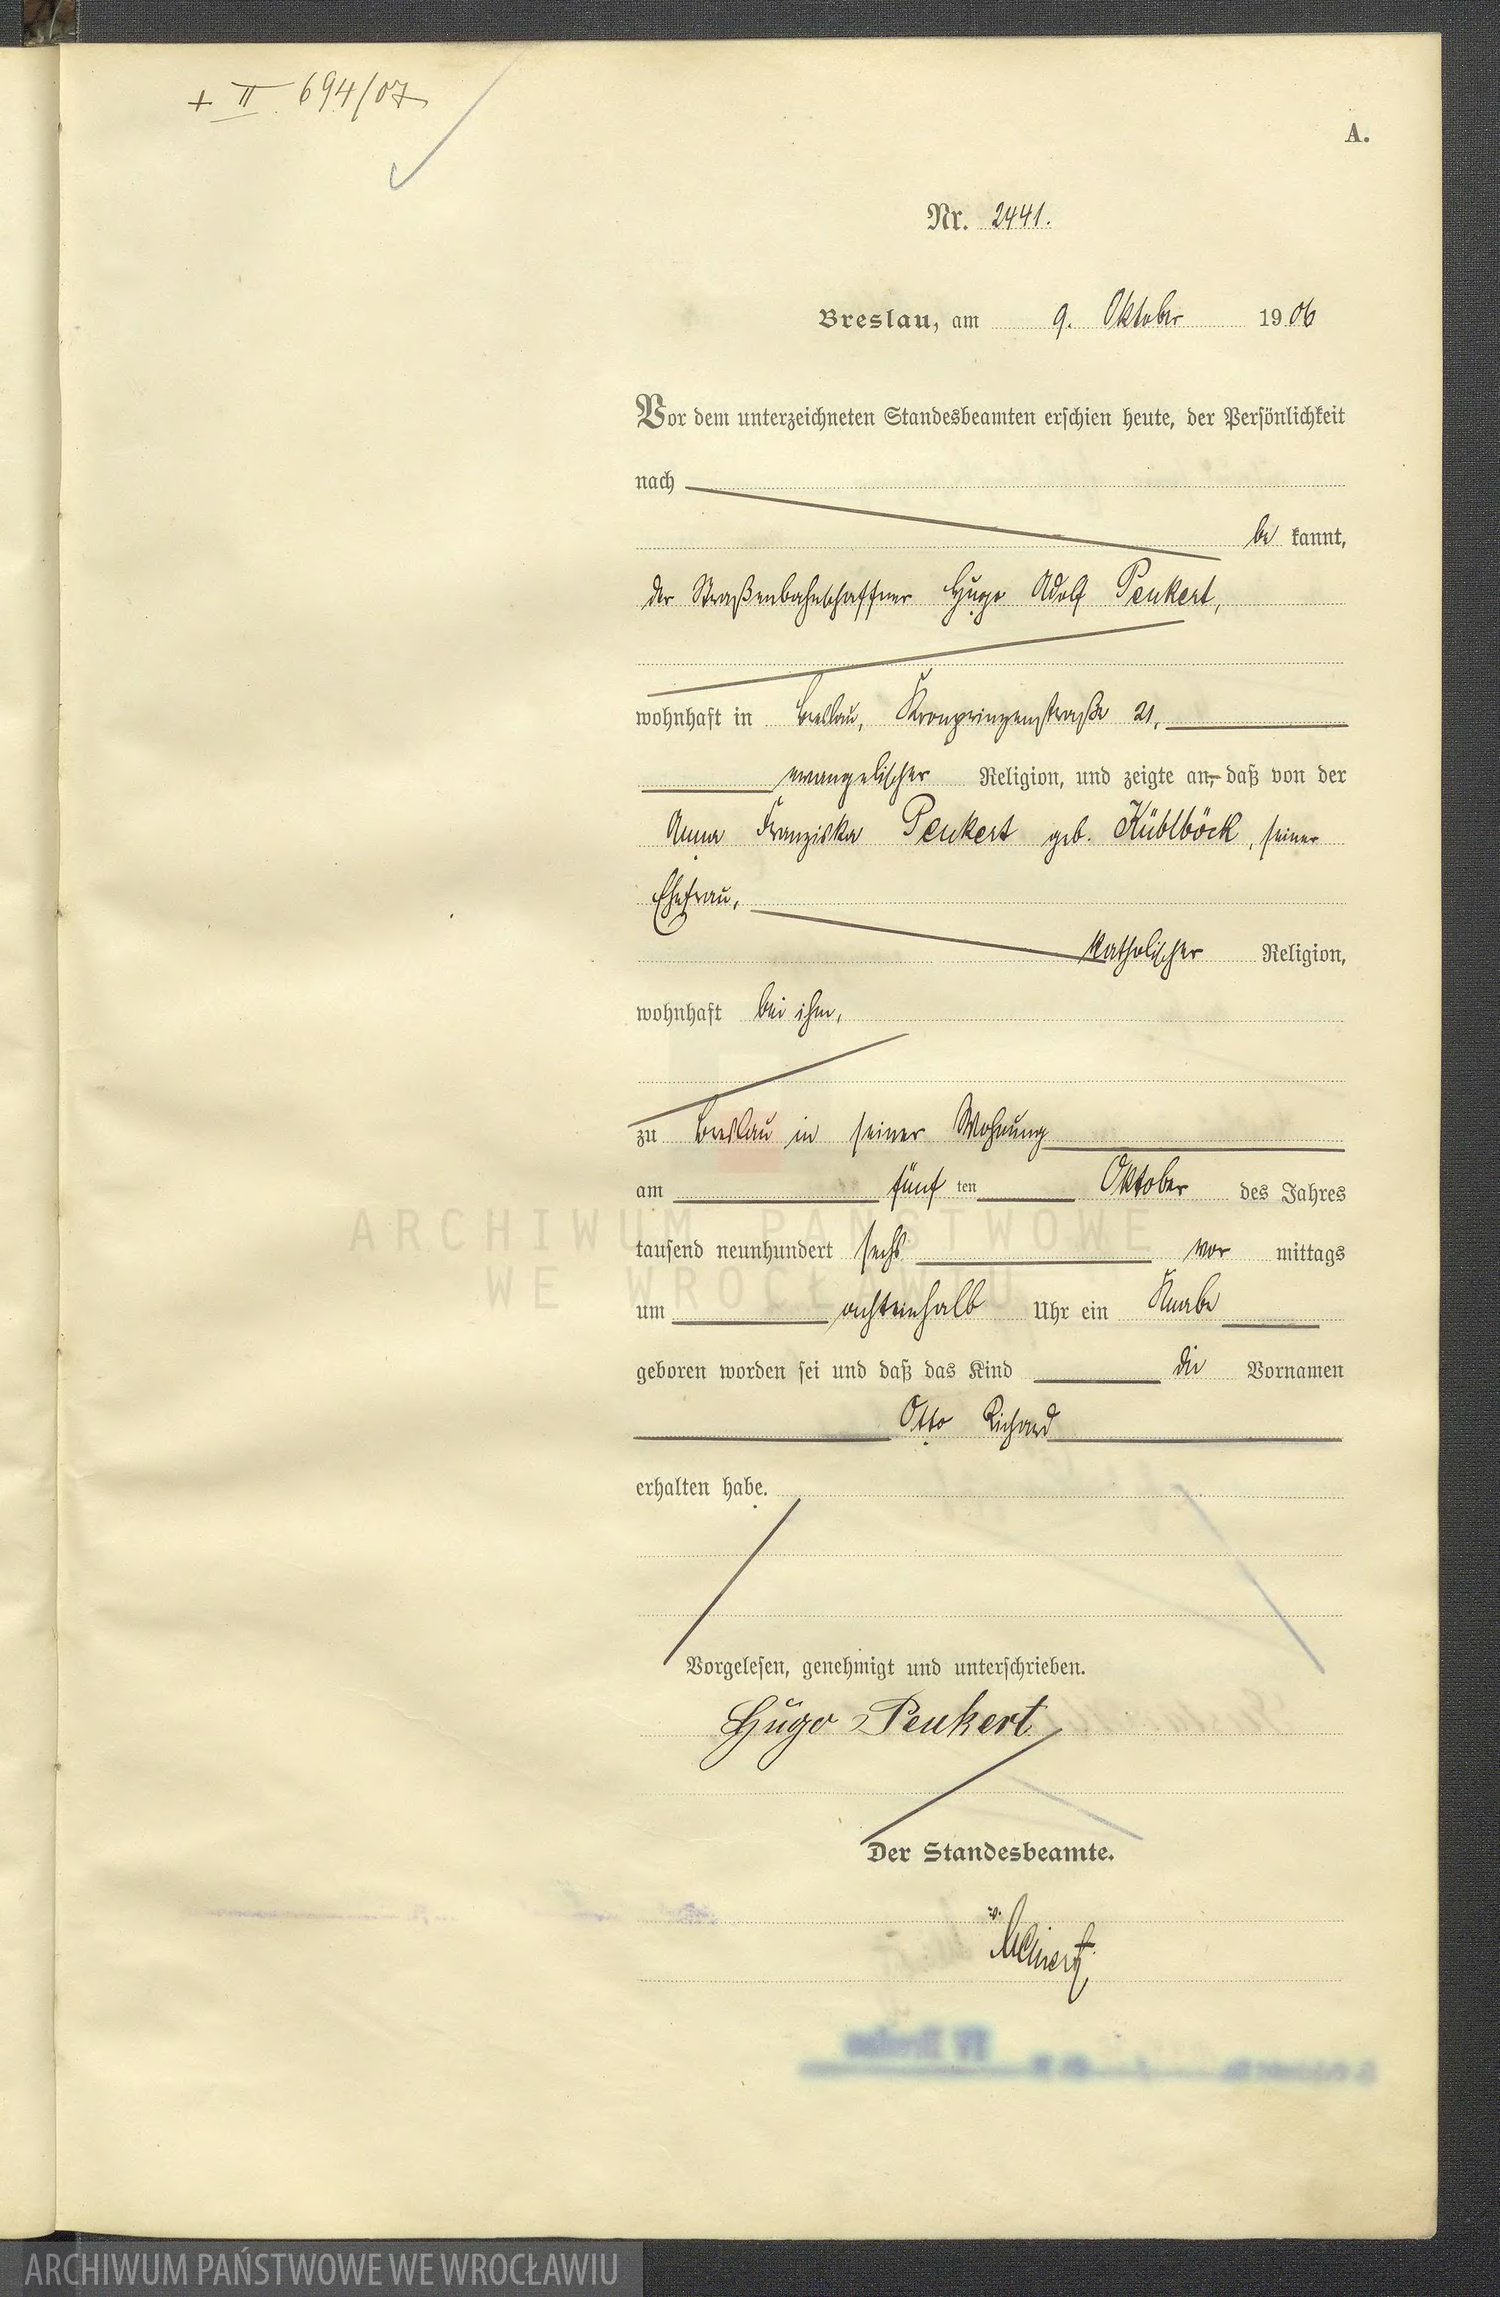 + II 694/07
A.
Nr. 2441.
Breslau, am 9. Oktober 1906
Vor dem unterzeichneten Standesbeamten erschien heute, der Persönlichkeit
nach
be kannt,
der Straßenbahnschaffner Hugo Adolf Peukert,
wohnhaft in Breslau, Kronprinzenstraße 21,
evangelischer Religion, und zeigte an, daß von der
Anna Franziska Peukert geb. Küblböck, seiner
Ehefrau,
katholischer Religion,
wohnhaft bei ihm,
zu Breslau in seiner Wohnung
am fünf ten Oktober des Jahres
tausend neunhundert sechs vor mittags
um achteinhalb Uhr ein Knabe
geboren worden sei und daß das Kind die Vornamen
Otto Richard
erhalten habe.
Vorgelesen, genehmigt und unterschrieben.
Hugo Peukert
Der Standesbeamte.
ARCHIWUM PAŃSTWOWE
WE WROCŁAWIU
ARCHIWUM PAŃSTWOWE WE WROCŁAWIU